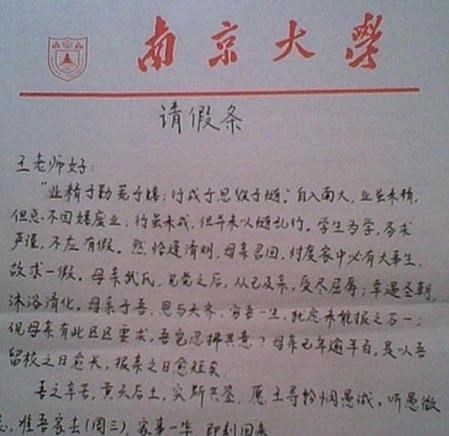 南京大学
请假条
王老师好:
"业精于勤荒于嬉;行成于思毁于随。"自入南大,业虽未精,
但忌不因嬉废业;行虽未成,但毕未以随乱行。学生为学,务求
严谨,不应有假。然恰逢清明,母亲召回,忖度家中必有大事生,
故求一假。母亲武氏,见党之后,从己及亲,受尽屈辱;幸遇圣朝,
沐浴清化。母亲于吾,恩与天齐,穷吾一生,犹定未能报之万一;
倪母亲有此区区要求,吾岂忍拂其意?母亲已年逾半百,是以吾
留校之日愈长,报亲之日愈短矣
吾之辛苦,黄天后土,实所共鉴,愿王导矜悯愚诚,听愚微
准吾家去(周三),家事一毕,即刻回来